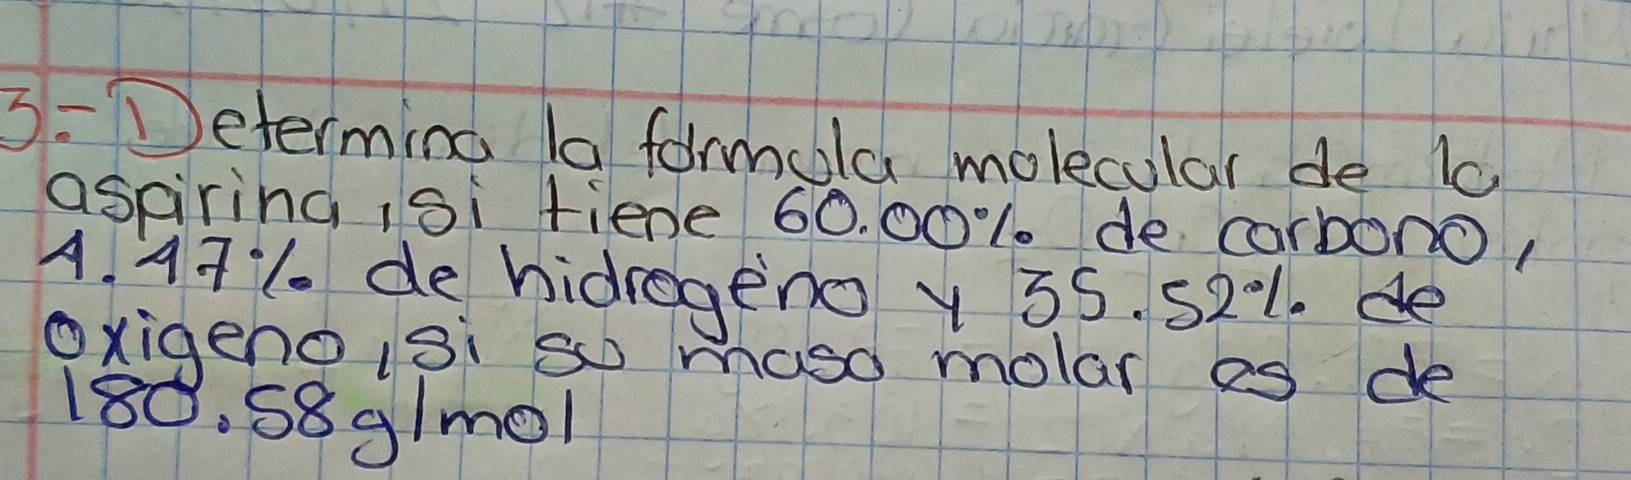 3.- Determina la fórmula molecular de la
aspirina, si tiene 60.00% de carbono,
4.47% de hidrogeno y 35.52% de
oxigeno, si su masa molar es de
180.58g/mol